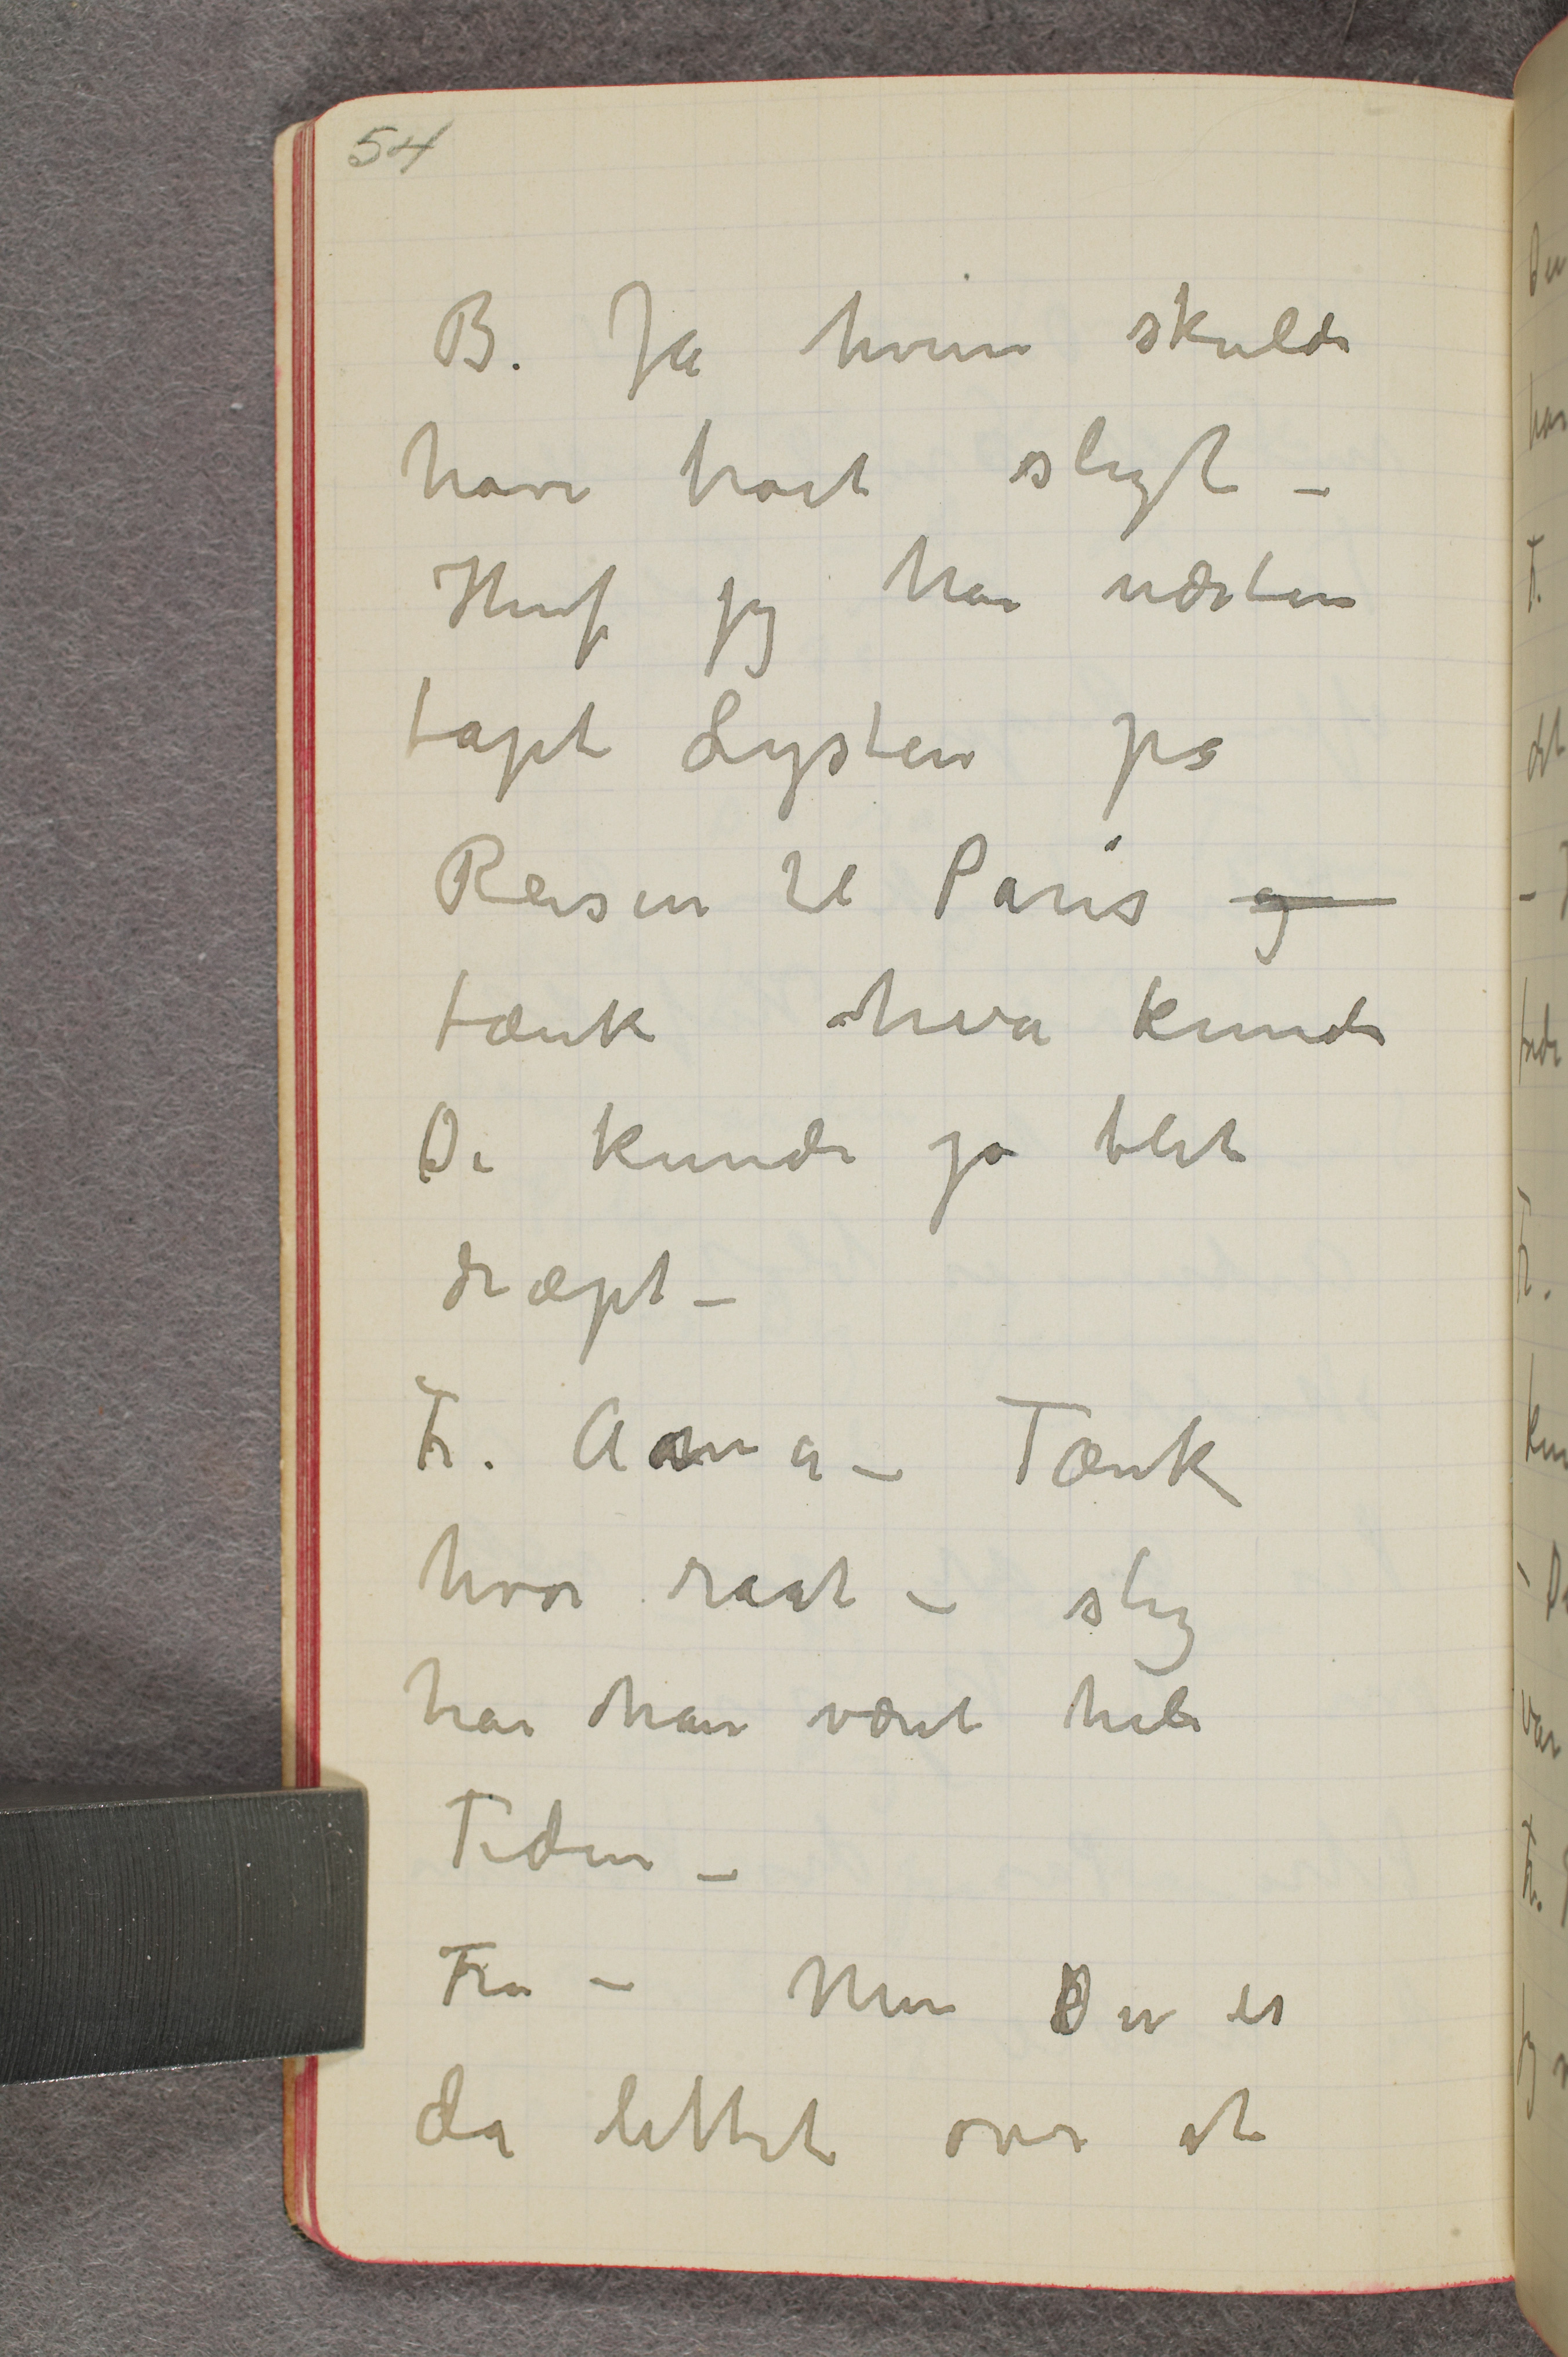 54
B. Ja hvem skulde
have troet sligt –
Huf jeg har næsten
tapt Lysten på
Reisen til Paris og
tænk hva kunde
De kunde jo blet
dræpt –
Fr. Aa na – Tænk
hvor raat – slig
har han vært hele
Tiden –
Fru – Men Du er
da lettet over at